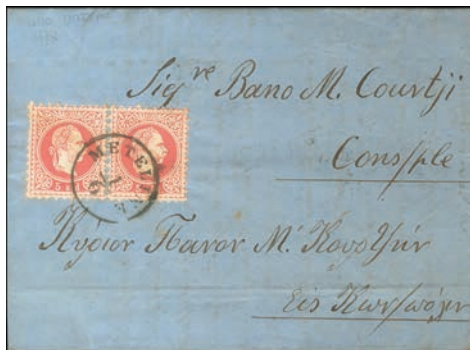 Sigʳᵉ Bano M. Courtji
Cons/ple
METELINE
Κύριον Πανον Μ. Κουρτζήν
Εἰς Κων/πόλιν